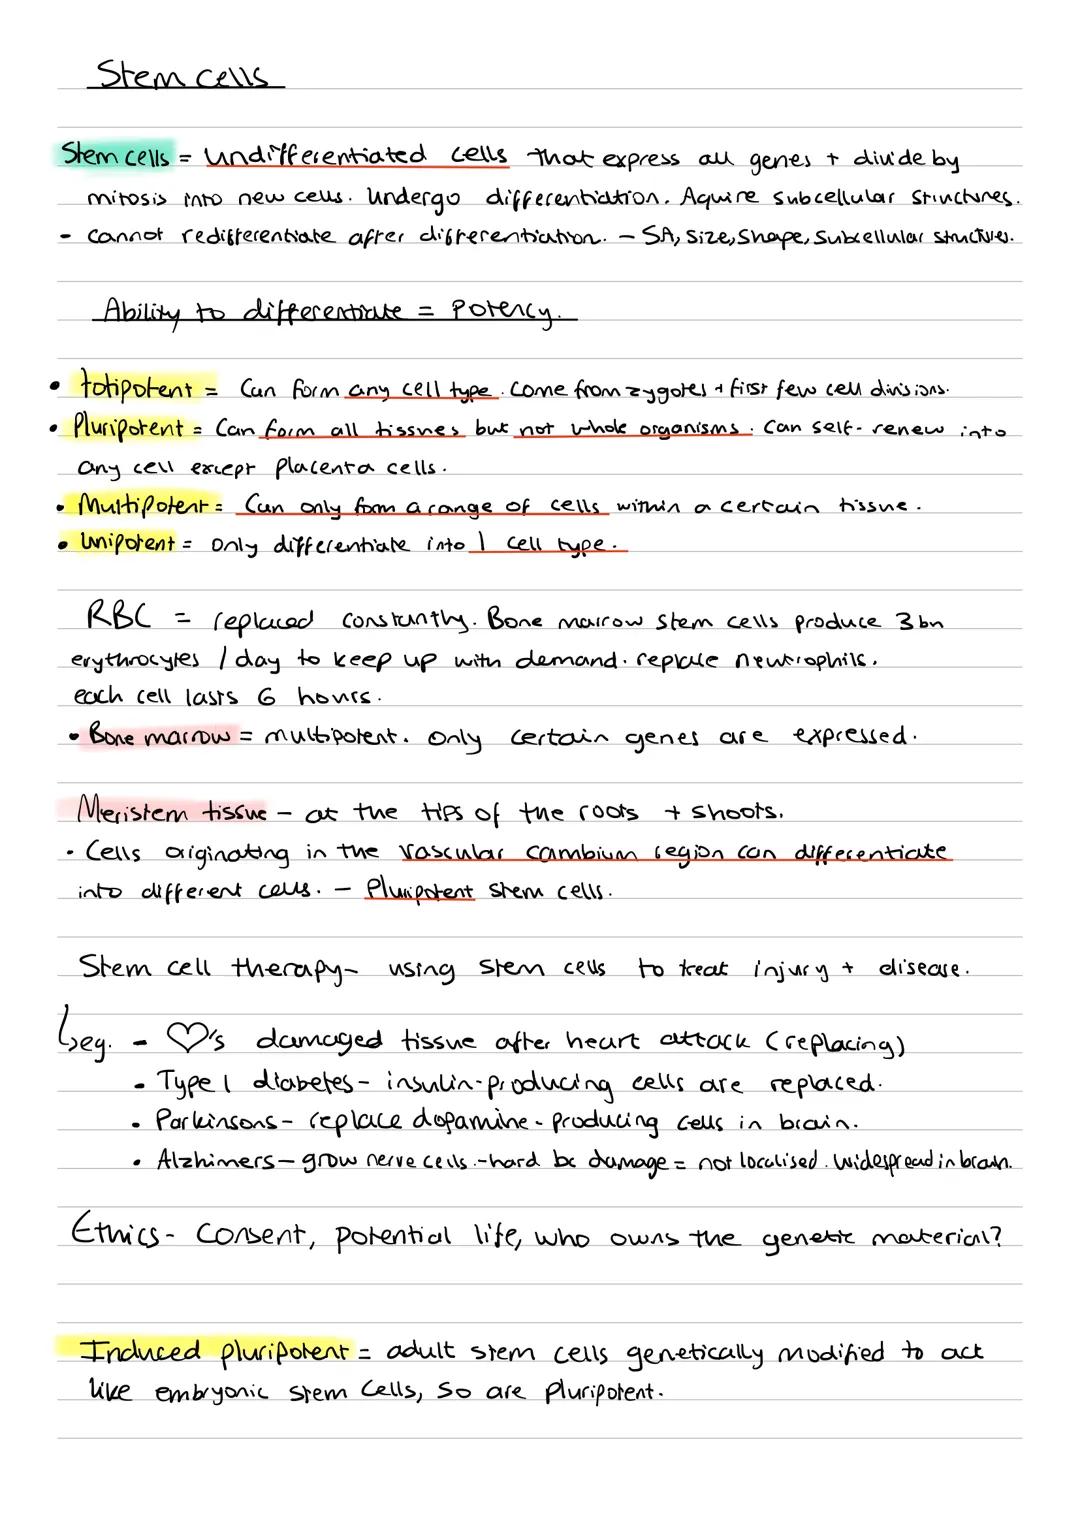 Stem cells
Stem cells = Undifferentiated cells that express all genes + divide by
mitosis into new cells. Undergo differentiation. Aquire subcellular structures.
- cannot redifferentiate after differentiation. - SA, Size, Shape, Subcellular structures.
Ability to differentiate = Potency.
• totipotent = Can form any cell type. Come from zygotes + first few cell divisions.
• Pluripotent = Can form all tissues but not whole organisms. Can self-renew into
any cell except placenta cells.
• Multipotent = Can only form a range of cells within a certain tissue.
• Unipotent = only differentiate into 1 cell type.
RBC = replaced constantly. Bone marrow stem cells produce 3bn
erythrocytes / day to keep up with demand. replace neutrophils.
each cell lasts 6 hours.
• Bone marrow = multipotent. only certain genes are expressed.
Meristem tissue - at the tips of the roots + shoots.
• Cells originating in the vascular cambium region can differentiate
into different cells. - Pluripotent stem cells.
Stem cell therapy - using stem cells to treat injury + disease.
eg. - ♡'s damaged tissue after heart attack (replacing)
• Type 1 diabetes - insulin-producing cells are replaced.
• Parkinsons - replace dopamine-producing cells in brain.
• Alzhimers - grow nerve cells. - hard bc damage = not localised. widespread in brain.
Ethics - Consent, potential life, who owns the genetic material?
Induced pluripotent = adult stem cells genetically modified to act
like embryonic stem cells, so are pluripotent.